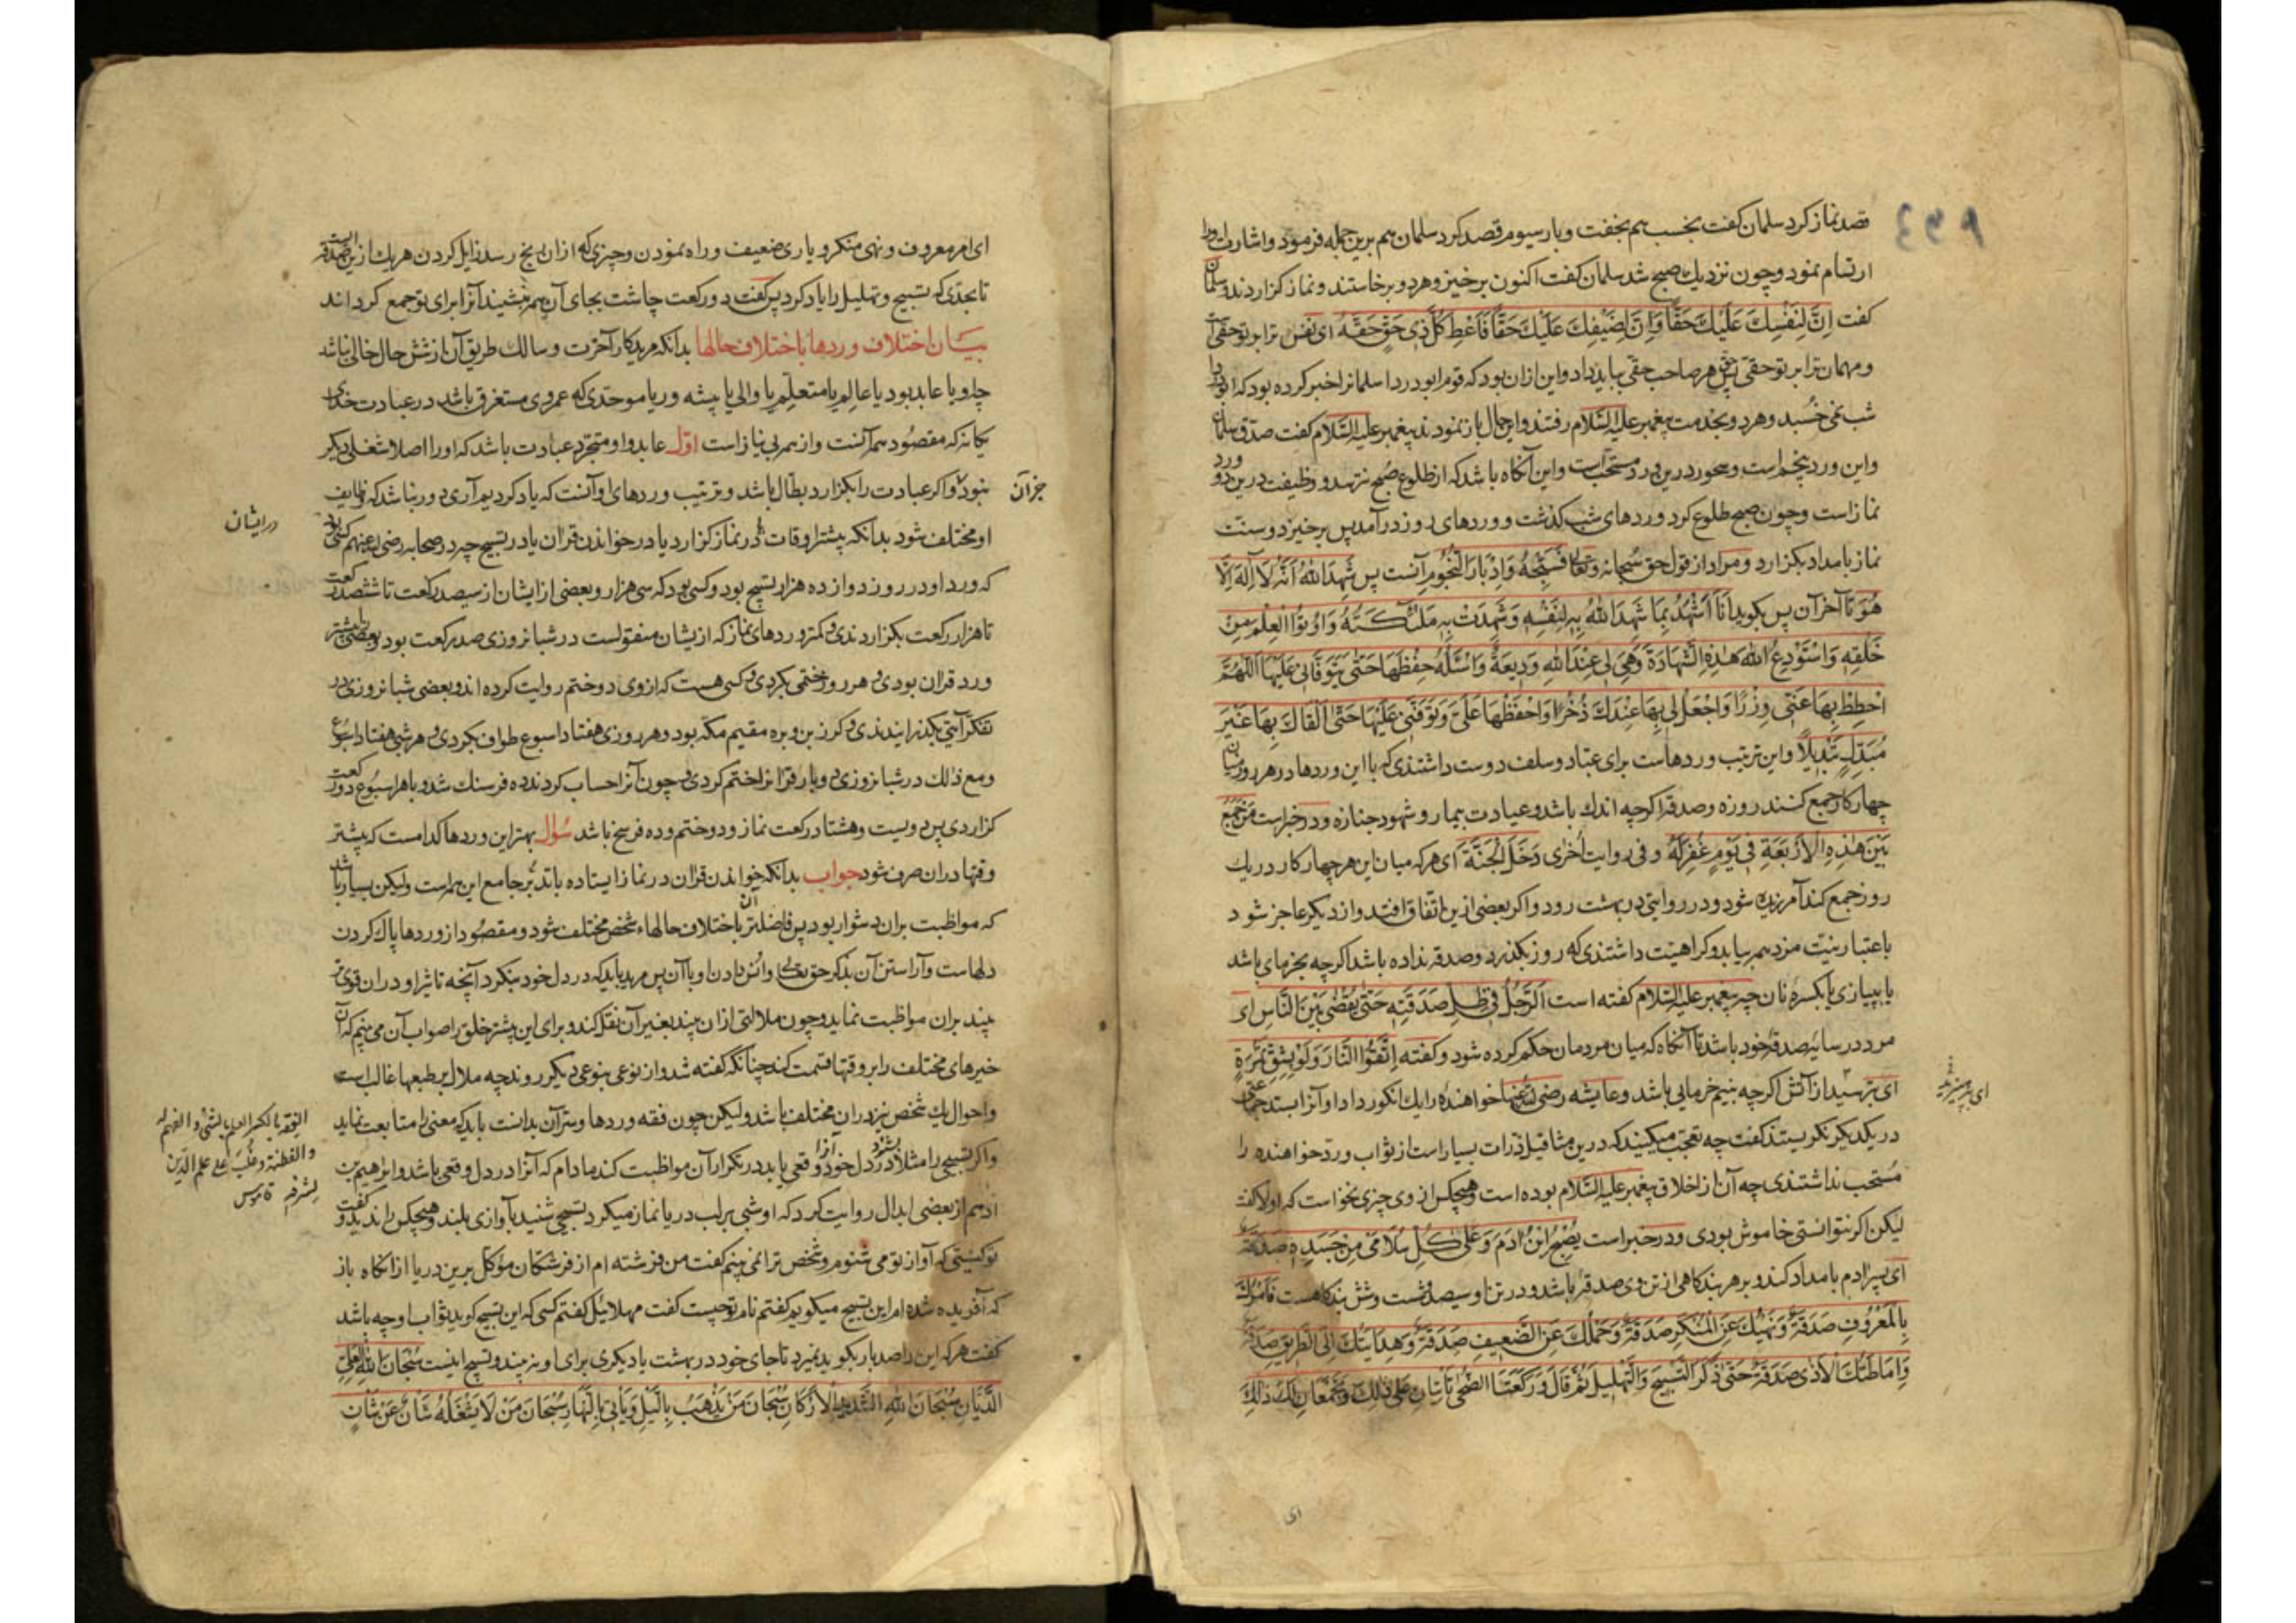 قصد نماز کرد سلمان کفت بخسب هم بخفت و بار سیوم قصد کرد سلمان هم برین جمله فرمود و اشارت او را
ارتسام نمود و چون نزدیک صبح شد سلمان کفت اکنون برخیز و هر دو برخاستند و نماز کزاردند و سلمان
کفت اِنَّ لِنَفْسِكَ عَلَيْكَ حَقًّا وَاِنَّ لِضَيْفِكَ عَلَيْكَ حَقًّا فَاَعْطِ كُلَّ ذِي حَقٍّ حَقَّهُ ای نفس ترا بر تو حقی است
و مهمان ترا بر تو حقی پس هر صاحب حقی بباید داد و این ازان بود که قوم ابودردا سلمانرا خبر کرده بود که ابودردا
شب نمی خُسبد و هر دو بخدمت پیغمبر علیه السّلام رفتند و این حال باز نمودند پیغمبر علیه السّلام کفت صدق سلمان
و این ورد پنجم است و سحور درین ورد مستحبّ است و این آنکاه باشد که از طلوع صُبح نترسد و وظیفت درین دو ورد
نماز است و چون صبح طلوع کرد وردهای شب کذشت و وردهای روز در آمد پس برخیزد و سنت
نماز بامداد بکزارد و مراد از قول حق سُبحانه و تعالی فَسَبِّحْهُ وَاِدْبَارَ النُّجُومِ آنست پس شَهِدَ اللهُ اَنَّهُ لَا اِلَهَ اِلَّا
هُوَ تا آخر آن پس بکوید اَنَا اَشْهَدُ بِمَا شَهِدَ اللهُ بِهِ لِنَفْسِهِ وَشَهِدَتْ بِهِ مَلٰئِكَتُهُ وَاُوتُوا الْعِلْمِ مِنْ
خَلْقِهِ وَاسْتَوْدِعُ اللهَ هٰذِهِ الشَّهَادَةَ وَهِيَ لِي عِنْدَ اللهِ وَدِيعَةٌ وَاَسْئَلُهُ حِفْظَهَا حَتّٰى يَتَوَفَّانِي عَلَيْهَا اَللّٰهُمَّ
احْطِطْ بِهَا عَنِّي وِزْرًا وَاجْعَلْ لِي بِهَا عِنْدَكَ ذُخْرًا وَاحْفَظْهَا عَلَيَّ وَتَوَفَّنِي عَلَيْهَا حَتّٰى اَلْقَاكَ بِهَا غَيْرَ
مُبَدِّلٍ تَبْدِيلًا و این ترتیب وردهاست برای عباد و سلف دوست داشتندی که با این وردها در هر روز میان
چهار کار جمع کنند روزه و صدقه اکرچه اندك باشد و عیادت بیمار و شهود جنازه و در خبر است مَنْ جَمَعَ
بَيْنَ هٰذِهِ الْاَرْبَعَةِ فِي يَوْمٍ غُفِرَ لَهُ و فی روایت اُخْرٰی دَخَلَ الْجَنَّةَ ای هر که میان این هر چهار کار در یك
روز جمع کند آمرزیده شود و در روایتی در بهشت رود و اکر بعضی ازین اتفاق افتد و از دیکر عاجز شود
باعتبار نیّت مزد همه بیابد و کراهیت داشتندی که روز بکذرد و صدقه نداده باشد اکرچه بخرمای باشد
یا بپیازی یا بکسرهٔ نان چه پیغمبر علیه السلام کفته است اَلرَّجُلُ فِي ظِلِّ صَدَقَتِهِ حَتّٰى يُقْضٰى بَيْنَ النَّاسِ ای
مرد در سایهٔ صدقهٔ خود باشد تا آنکاه که میان مردمان حکم کرده شود و کفته اِتَّقُوا النَّارَ وَلَوْ بِشِقِّ تَمْرَةٍ
ای بترسید از آتش اکرچه بنیم خرمایی باشد و عایشه رضی الله عنها خواهندهٔ را یك انکور داد او آنرا بستد
در یکدیکر نکریستند کفت چه تعجب میکنید که درین مثاقیل ذرات بسیار است از ثواب و ردّ خواهنده را
مُستحب نداشتندی چه آن از اخلاق پیغمبر علیه السّلام بوده است و هیچکس از وی چیزی نخواست که او لا کفت
لیکن اکر نتوانستی خاموش بودی و در خبر است يُصْبِحُ ابْنُ اٰدَمَ وَعَلٰى كُلِّ سُلَامٰى مِنْ جَسَدِهِ صَدَقَةٌ
ای پسر ادم بامداد کند و بر هر بندکاهی از تن وی صدقه باشد و در تن او سیصد و شست و شش بندکاهست فَاَمْرُكَ
بِالْمَعْرُوفِ صَدَقَةٌ وَنَهْيُكَ عَنِ الْمُنْكَرِ صَدَقَةٌ وَحَمْلُكَ عَنِ الضَّعِيفِ صَدَقَةٌ وَهِدَايَتُكَ اِلَى الطَّرِيقِ صَدَقَةٌ
وَاِمَاطَتُكَ الْاَذٰى صَدَقَةٌ حَتّٰى ذَكَرَ التَّسْبِيحَ وَالتَّهْلِيلَ ثُمَّ قَالَ وَرَكْعَتَا الضُّحٰى تَاْتِيَانِ عَلٰى ذٰلِكَ وَتَجْمَعَانِ لَكَ ذٰلِكَ
ای بپرهیزید
ای
ای امر معروف و نهی منکر و یاری ضعیف و راه نمودن و چیزی که ازان رنج رسد زایل کردن هر یك ازین صدقه است
تا بحدّی که تسبیح و تهلیل را یاد کرد پس کفت دو رکعت چاشت بجای آن همه بنشیند آنرا برای تو جمع کرداند
بیان اختلاف وردها باختلاف حالها بدانکه مرید کار آخرت و سالك طریق آن از شش حال خالی نباشد
چه او یا عابد بود یا عالم یا متعلّم یا والی یا پیشه ور یا موحّدی که عمر وی مستغرق باشد در عبادت خدای
یکانه که مقصُود همه آنست و از همه بی نیاز است اوّل عابد و او متجرّد عبادت باشد که او را اصلا شغلی دیکر
جز آن
نبود و اکر عبادت را بکزارد بطّال باشد و ترتیب وردهای او آنست که یاد کردیم آری دور نباشد که وظایف
او مختلف شود بدانکه بیشتر اوقات در نماز کزارد یا در خواندن قران یا در تسبیح چه در صحابه رضی الله عنهم کس بود
در ایشان
که ورد او در روز دوازده هزار تسبیح بود و کسی بود که سی هزار و بعضی از ایشان از سیصد رکعت تا ششصد رکعت
تا هزار رکعت بکزاردندی و کمتر وردهای نماز که ازیشان منقولست در شبانروزی صد رکعت بود و بعضی را بیشتر
ورد قران بودی و هر روز ختمی بکردی و کسی هست که از وی دو ختم روایت کرده اند و بعضی شبانروزی در
تفکر آیتی بکذرانیدندی و کرز بن وبره مقیم مکه بود و هر روزی هفتاد اسبوع طواف بکردی و هر شبی هفتاد اسبوع
و مع ذالك در شبانروزی دو بار قرانرا ختم کردی چون آنرا حساب کردند ده فرسنك شد و با هر اسبُوع دو رکعت
کزاردی پس دویست و هشتاد رکعت نماز و دو ختم و ده فرسخ باشد سُؤال بهترین وردها کدامست که بیشتر
وقتها دران صرف شود جواب بدانکه خواندن قران در نماز ایستاده با تدبّر جامع این همه است ولیکن بسیار باشد
که مواظبت بران دشوار بود پس فاضلتر آن باختلاف حالهاء شخص مختلف شود و مقصُود از وردها پاك کردن
دلهاست و آراستن آن بذکر حق تعالی و انس دادن او با آن پس مرید باید که در دل خود بنکرد آنچه تاثیر او دران قوی تر
بیند بران مواظبت نماید و چون ملالتی ازان بیند بغیر آن نقل کند و برای این بیشتر خلق را صواب آن می بینم که آن
خیرهای مختلف را بر وقتها قسمت کند چنانکه کفته شد و از نوعی بنوعی دیکر روند چه ملال بر طبعها غالب است
و احوال یك شخص نیز دران مختلف باشد ولیکن چون فقه وردها و سر آن بدانست باید که معنی را متابعت نماید
الفقه بالكسر العلم بالشیء و الفهم له
و الفطنة و غلب علی علم الدین
لشرفه قاموس
و اکر تسبیحی را مثلا بشنود در دل خود آنرا وقعی یابد در تکرار آن مواظبت کند مادام که آنرا در دل وقعی باشد و ابراهیم بن
ادهم از بعضی ابدال روایت کرد که او شبی بر لب دریا نماز میکرد تسبیحی شنید بآوازی بلند و هیچکس را ندید و کفت
تو کیستی که آواز تو می شنوم و شخص ترا نمی بینم کفت من فرشته ام از فرشتکان مؤکل برین دریا ازانکاه باز
که آفریده شده ام این تسبیح میکویم کفتم نام تو چیست کفت مهلائیل کفتم کسی که این تسبیح کوید ثواب او چه باشد
کفت هرکه این را صد بار بکوید نمیرد تا جای خود در بهشت یا دیکری برای او نه بیند و تسبیح اینست سُبْحَانَ اللهِ الْعَلِيِّ
الدَّيَّانِ سُبْحَانَ اللهِ الشَّدِيدِ الْاَرْكَانِ سُبْحَانَ مَنْ يَذْهَبُ بِاللَّيْلِ وَيَأْتِي بِالنَّهَارِ سُبْحَانَ مَنْ لَا يَشْغَلُهُ شَأْنٌ عَنْ شَأْنٍ